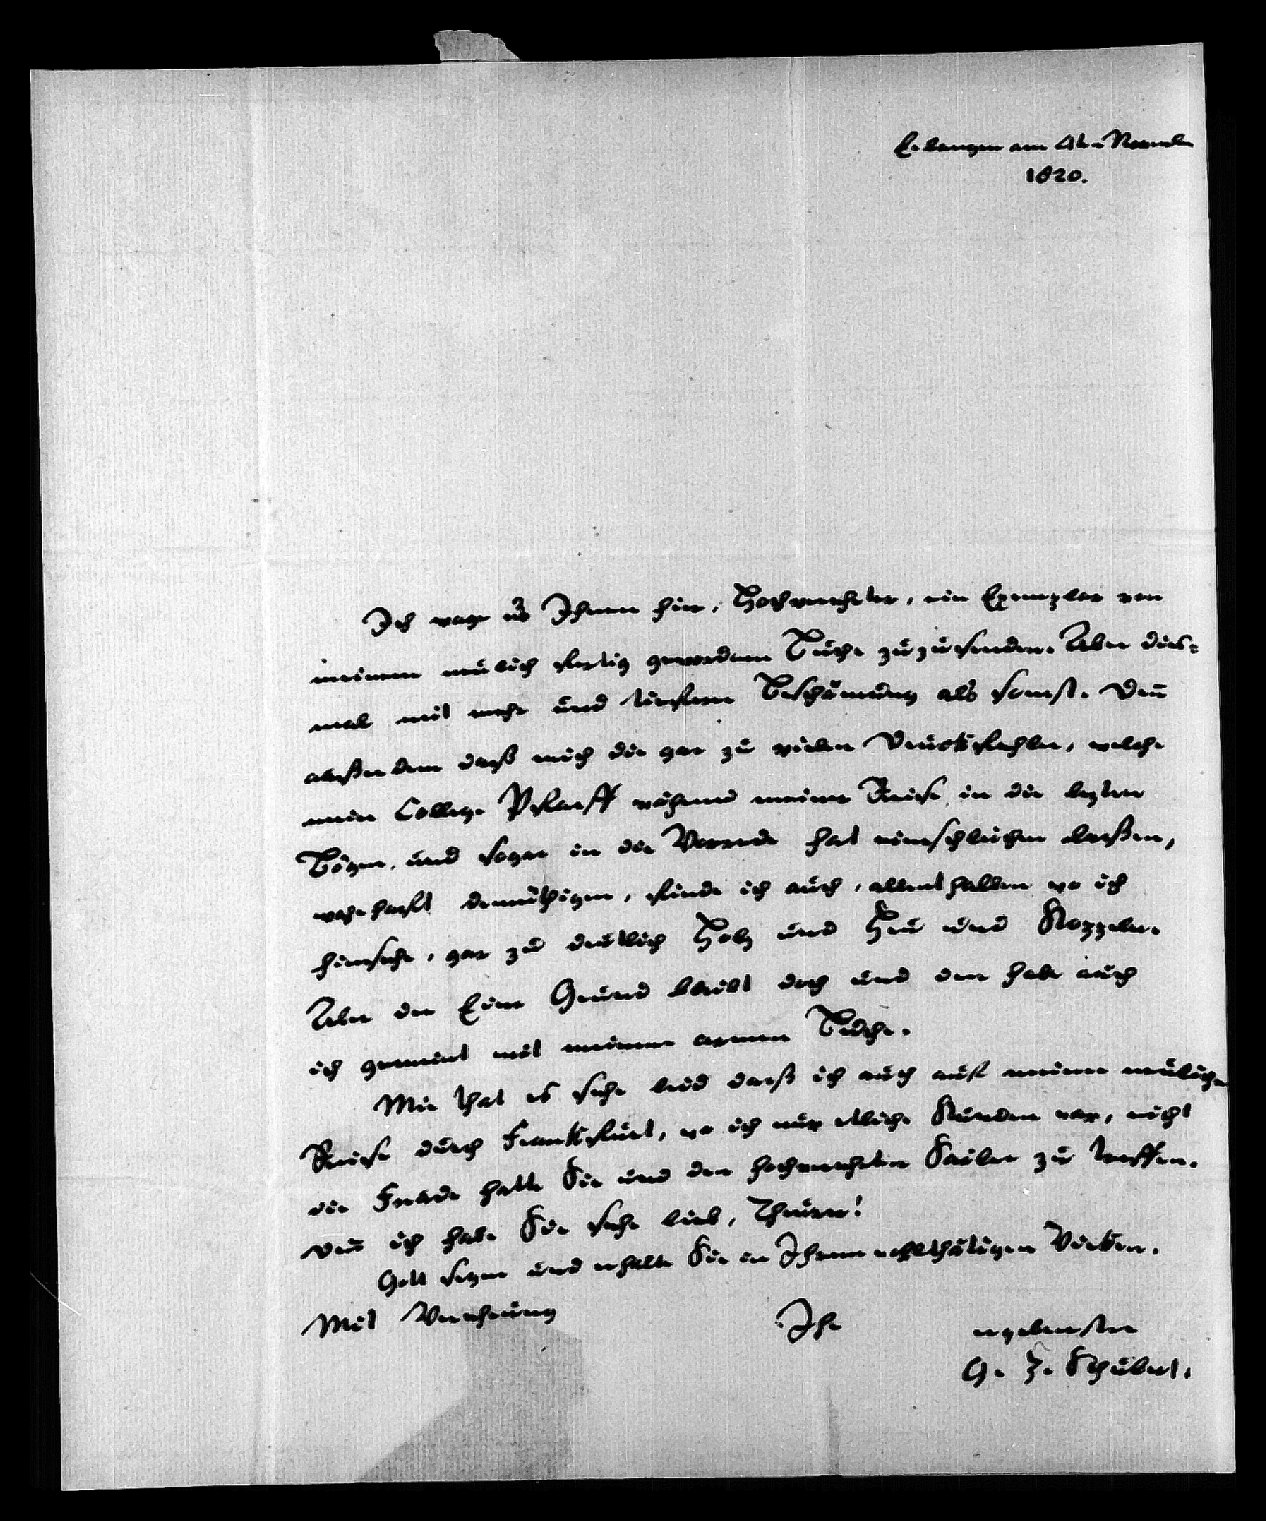 Erlangen am 4ten Novemb
1820.
Ich wage es Ihnen hier, Hochverehrter, ein Exemplar von
meinem neulich fertig gewordenen Buche zuzusenden. Aber dies=
mal mit mehr und tieferer Beschämung als sonst. Deñ
außerdem daß mich die gar zu vielen Druckfehler, welche
mein College Pfaff während meiner Reise in die lezten
Bögen, und sogar in die Vorrede hat einschleichen laßen,
wahrhaft demüthigen, finde ich auch, allenthalben wo ich
hinsehe, gar zu deutlich Holz und Heu und Stoppeln.
Aber der Eine Grund bleibt doch und den habe auch
ich gemeint mit meinem armen Buche.
Mir that es sehr leid daß ich auch auf meiner neulichen
Reise durch Frankfurt, wo ich nur etliche Stunden war, nicht
die Freude hatte Sie und den hochverehrten Sailer zu treffen.
Deñ ich habe Sie sehr lieb, Theurer!
Gott segne und erhalte Sie in Ihrem wohlthätigen Wirken.
Mit Verehrung Ihr ergebenster
G. H. Schubert.